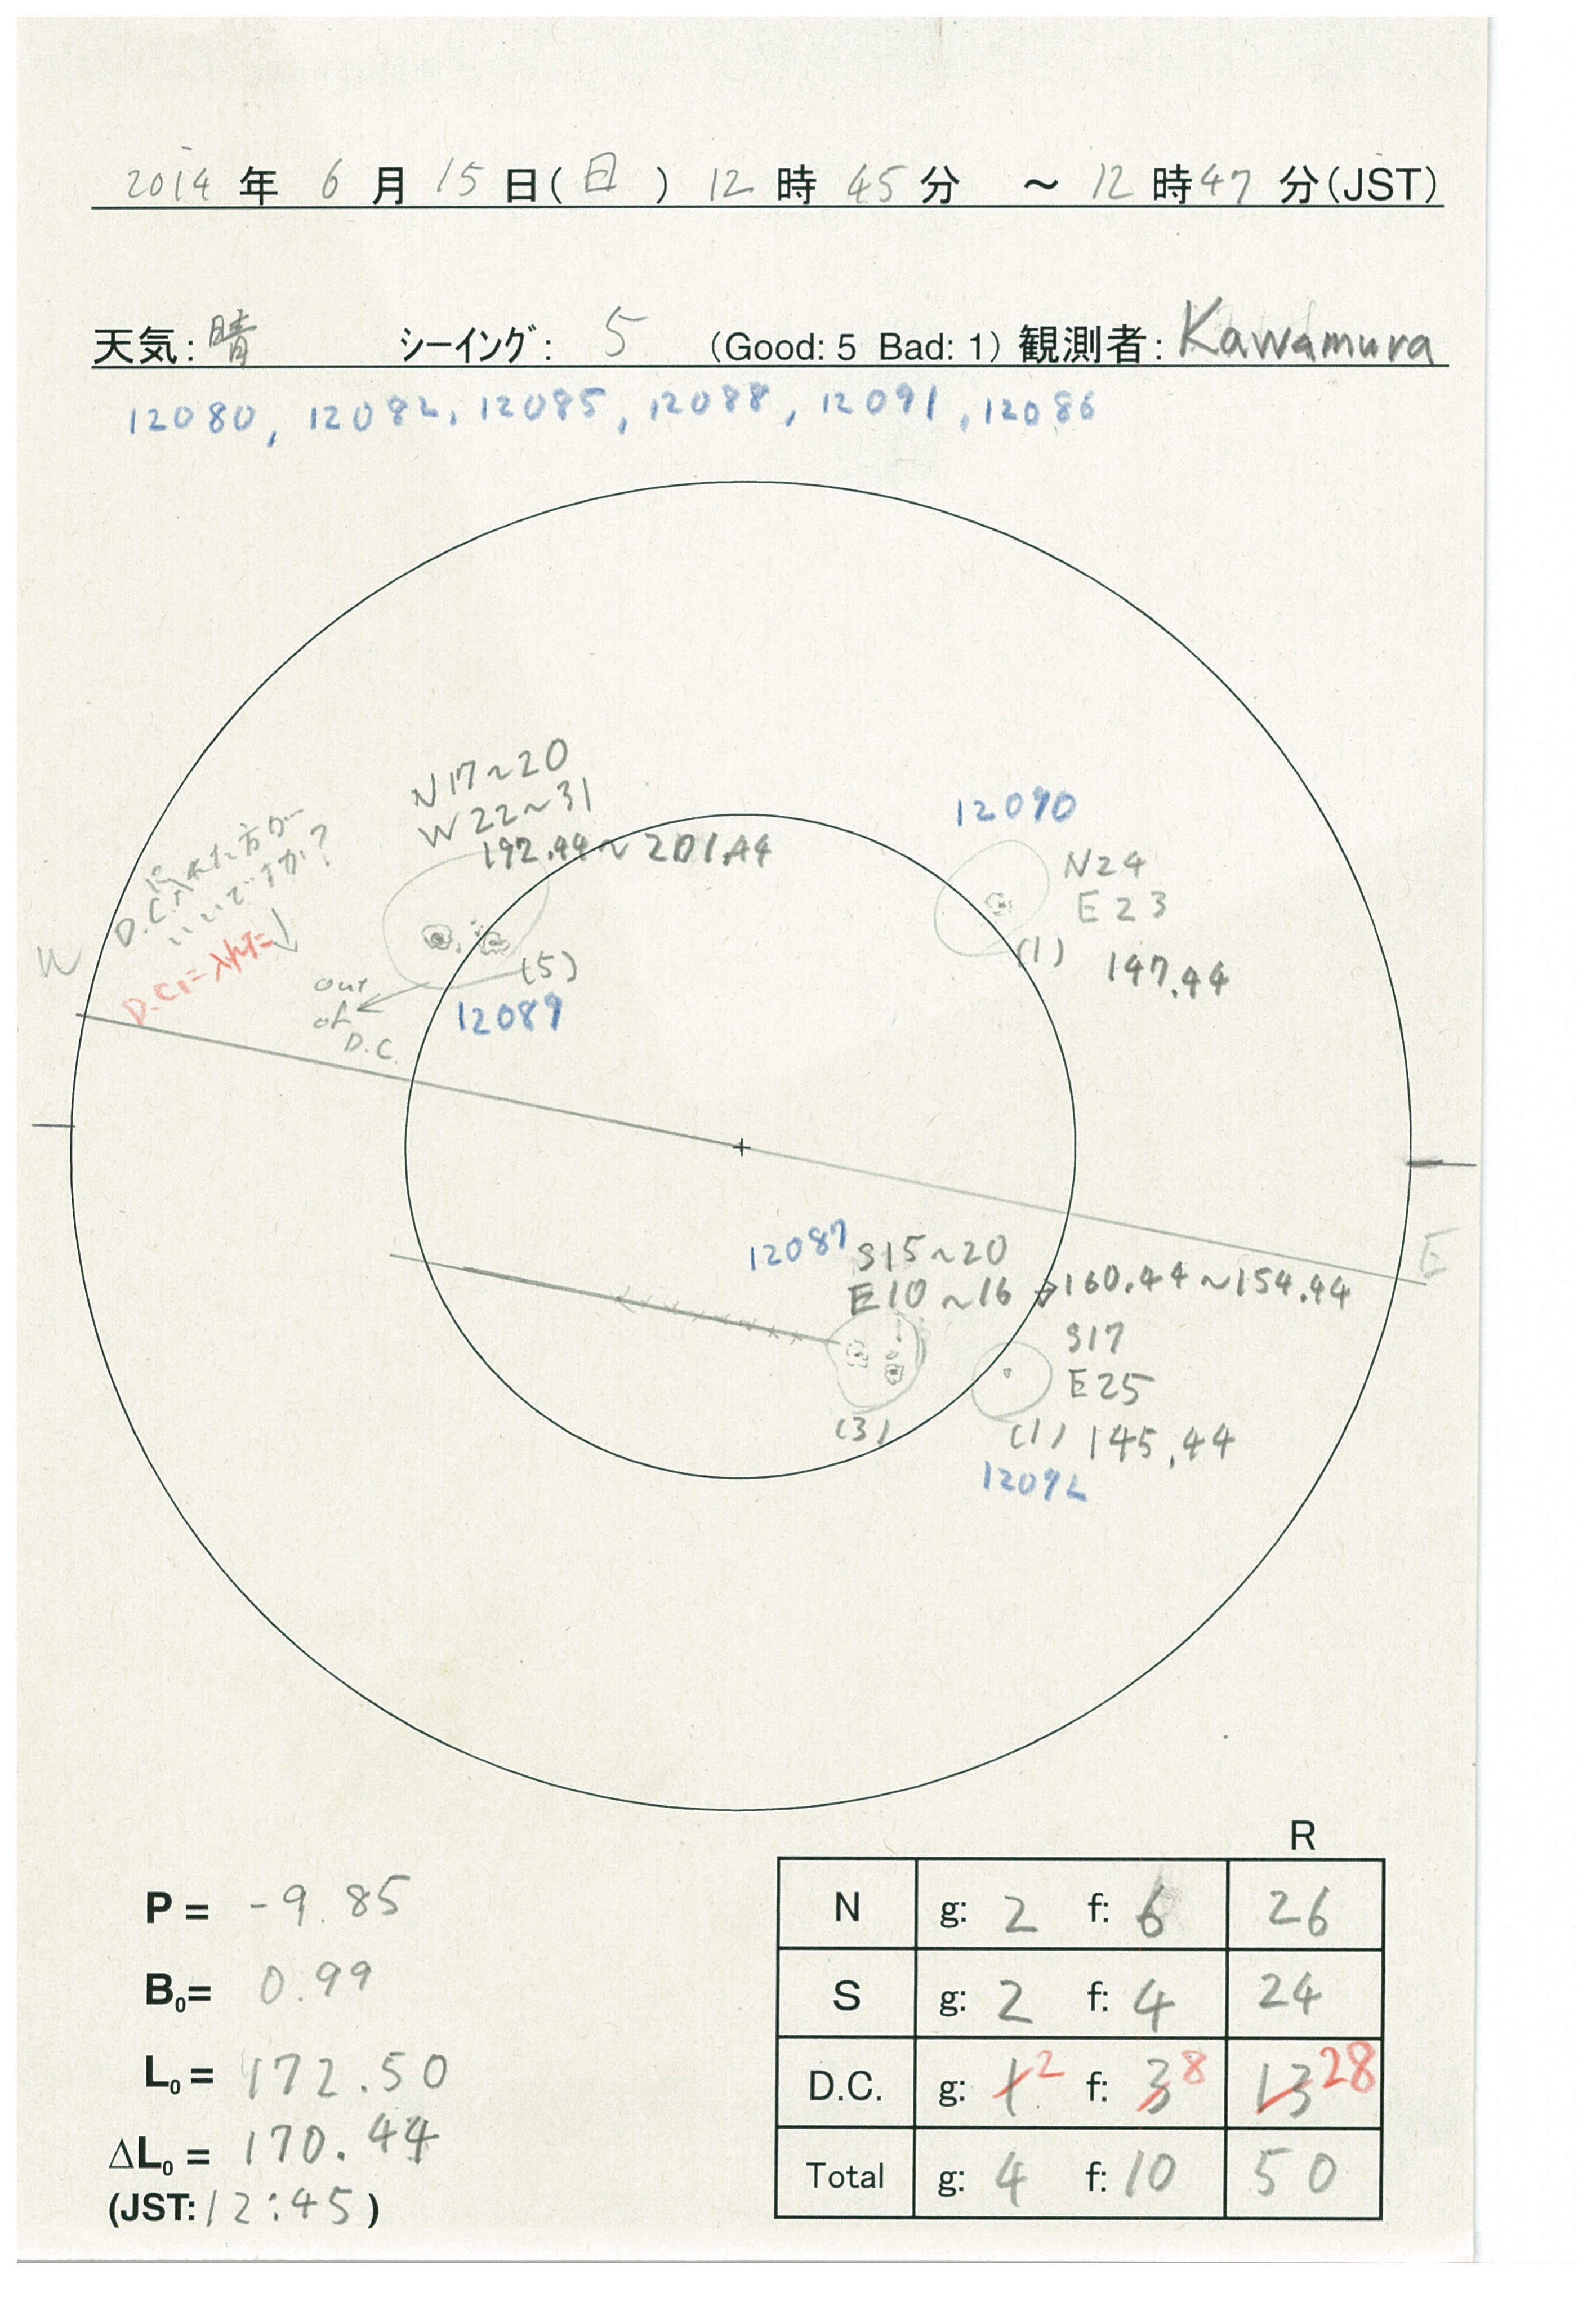 2014 年 6 月 15 日(日) 12 時 45 分 ～ 12 時 47 分(JST)
天気: 晴 シーイング: 5 (Good: 5 Bad: 1) 観測者: Kawamura
12080, 12082, 12085, 12088, 12091, 12086
N17~20
W22~31
192.44~201.44
(5)
12089
D.C.に入れた方が
いいですか?
D.C.に入れた
out
of
D.C.
W
12090
N24
E23
(1) 147.44
E
12087
S15~20
E10~16 → 160.44~154.44
(3)
S17
E25
(1) 145.44
12092
P = -9.85
B0= 0.99
L0= 172.50
ΔL0= 170.44
(JST: 12:45)
R
N g: 2 f: 6 26
S g: 2 f: 4 24
D.C. g: 1 2 f: 3 8 13 28
Total g: 4 f: 10 50